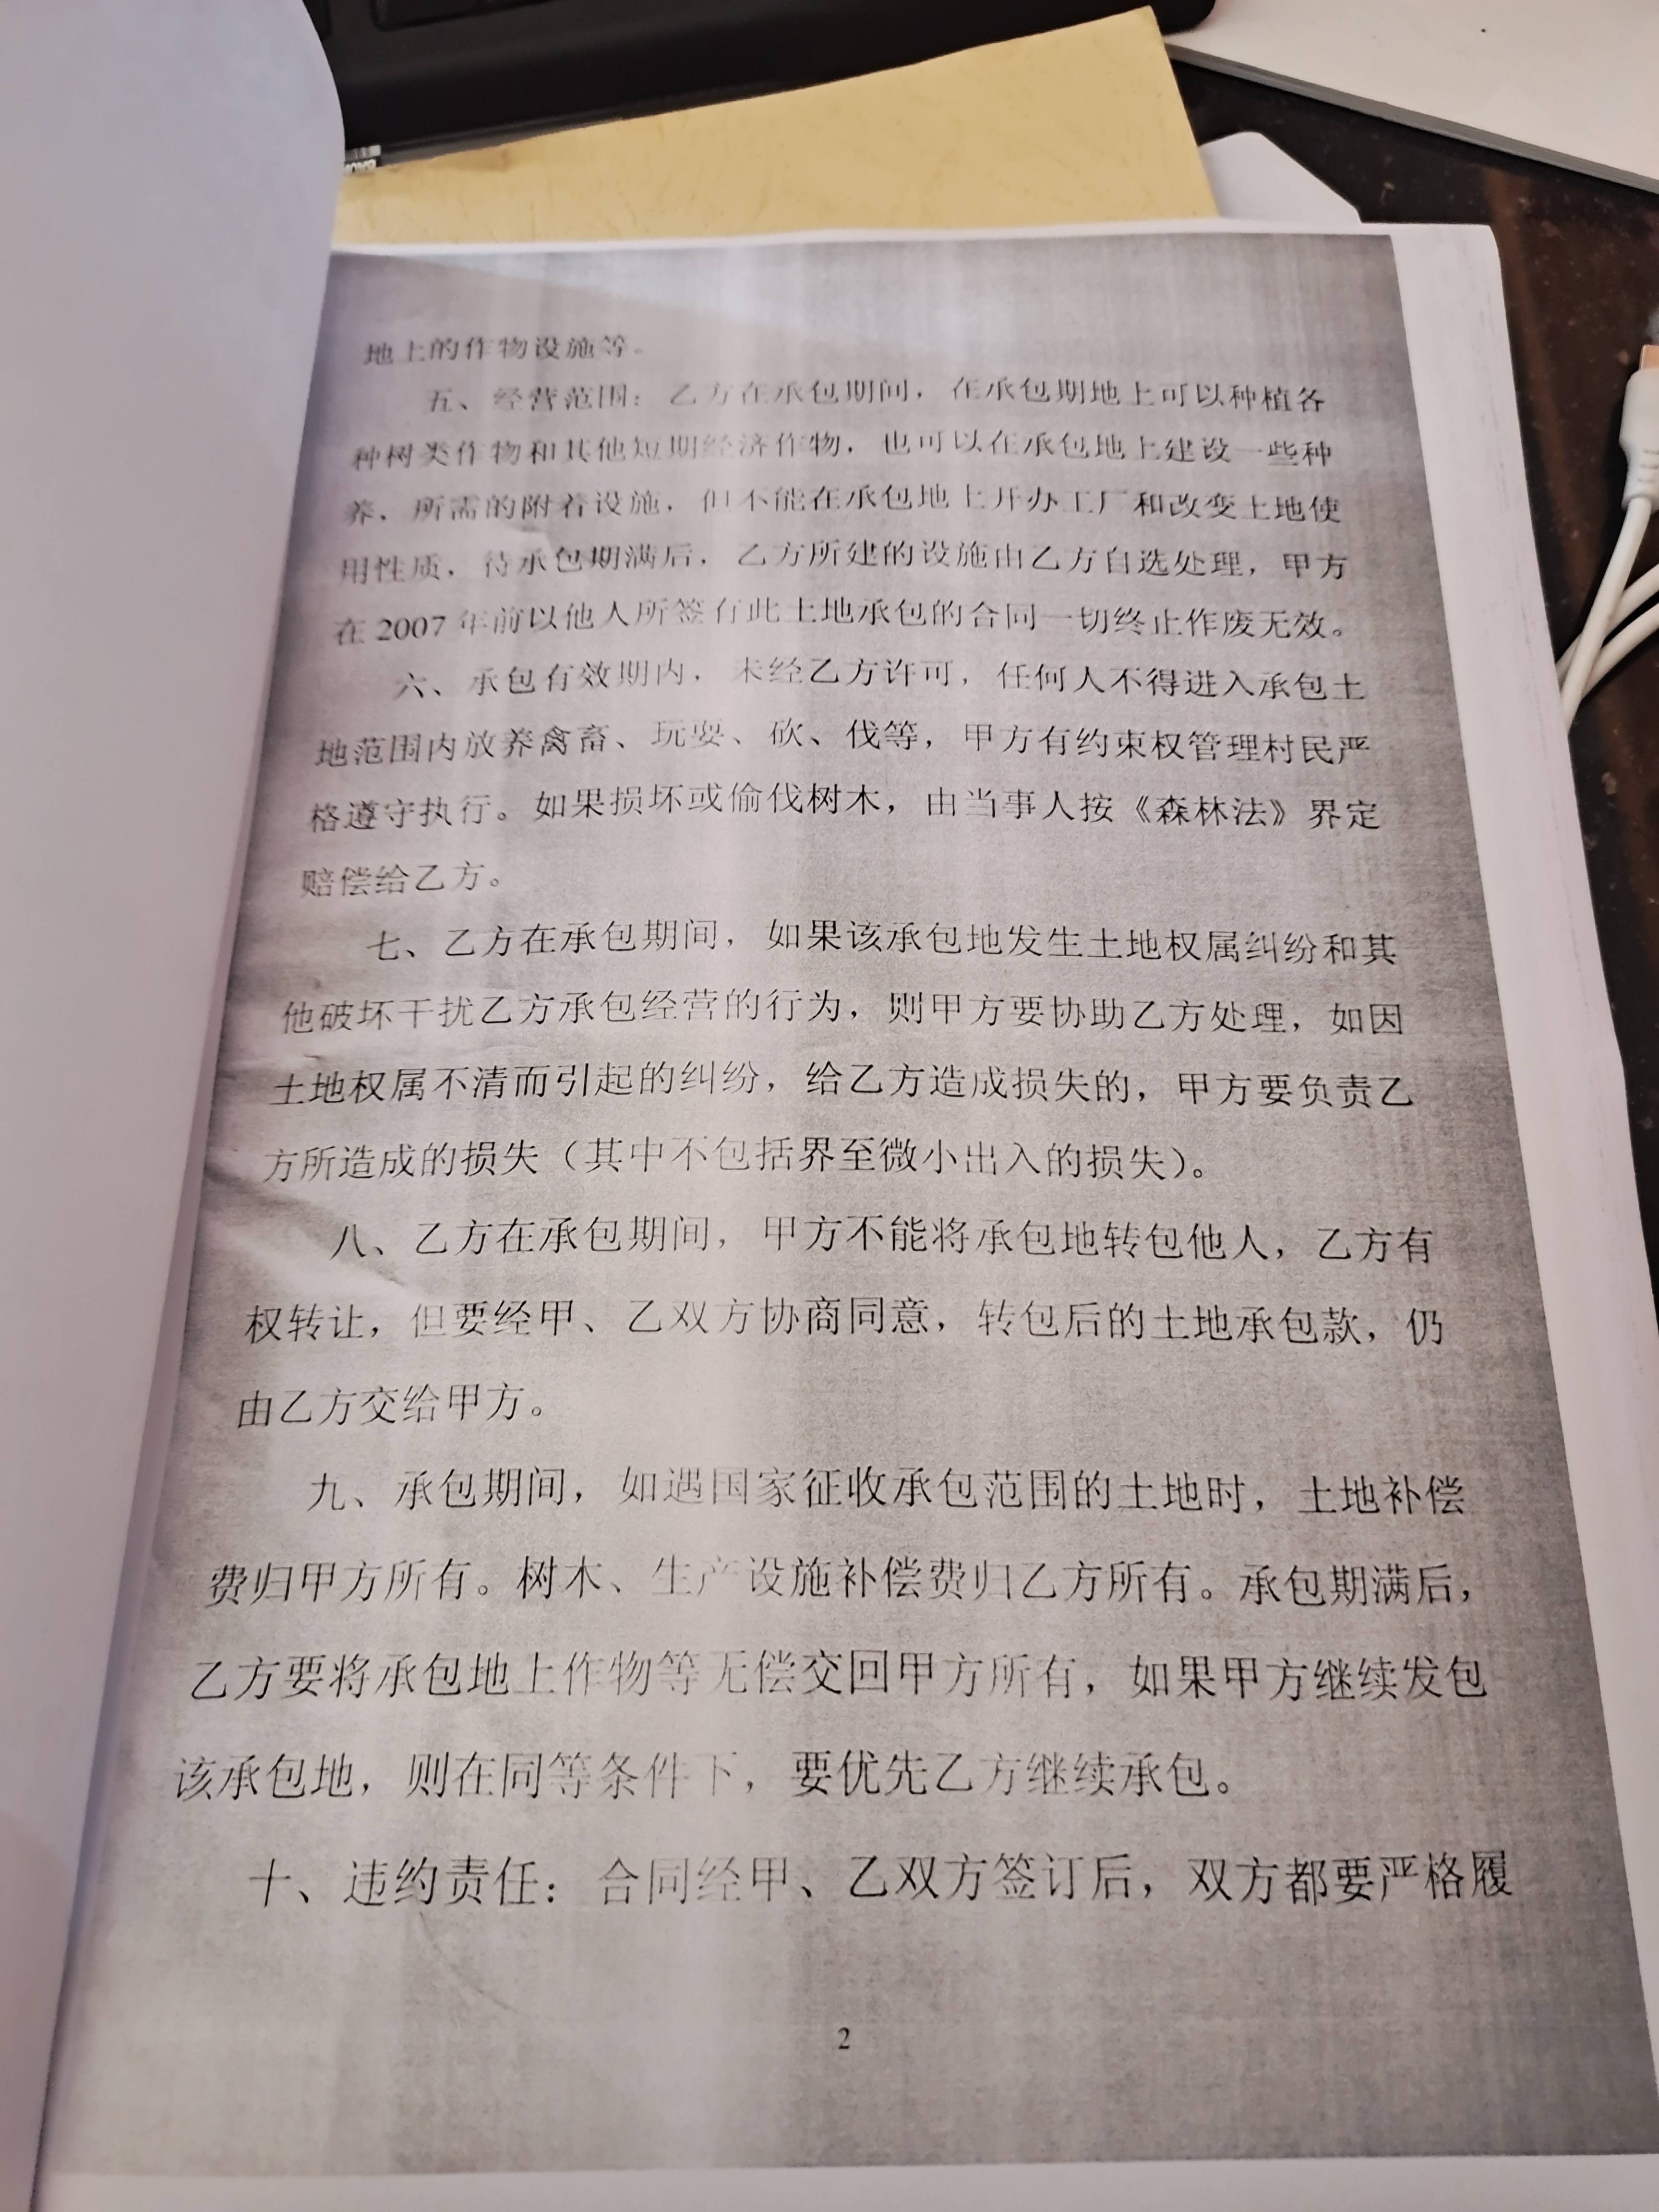 地上的作物设施等。
五、经营范围：乙方在承包期间，在承包期地上可以种植各
种树类作物和其他短期经济作物，也可以在承包地上建设一些种
养、所需的附着设施，但不能在承包地上开办工厂和改变土地使
用性质，待承包期满后，乙方所建的设施由乙方自选处理，甲方
在 2007 年前以他人所签有此土地承包的合同一切终止作废无效。
六、承包有效期内，未经乙方许可，任何人不得进入承包土
地范围内放养禽畜、玩耍、砍、伐等，甲方有约束权管理村民严
格遵守执行。如果损坏或偷伐树木，由当事人按《森林法》界定
赔偿给乙方。
七、乙方在承包期间，如果该承包地发生土地权属纠纷和其
他破坏干扰乙方承包经营的行为，则甲方要协助乙方处理，如因
土地权属不清而引起的纠纷，给乙方造成损失的，甲方要负责乙
方所造成的损失（其中不包括界至微小出入的损失）。
八、乙方在承包期间，甲方不能将承包地转包他人，乙方有
权转让，但要经甲、乙双方协商同意，转包后的土地承包款，仍
由乙方交给甲方。
九、承包期间，如遇国家征收承包范围的土地时，土地补偿
费归甲方所有。树木、生产设施补偿费归乙方所有。承包期满后，
乙方要将承包地上作物等无偿交回甲方所有，如果甲方继续发包
该承包地，则在同等条件下，要优先乙方继续承包。
十、违约责任：合同经甲、乙双方签订后，双方都要严格履
2